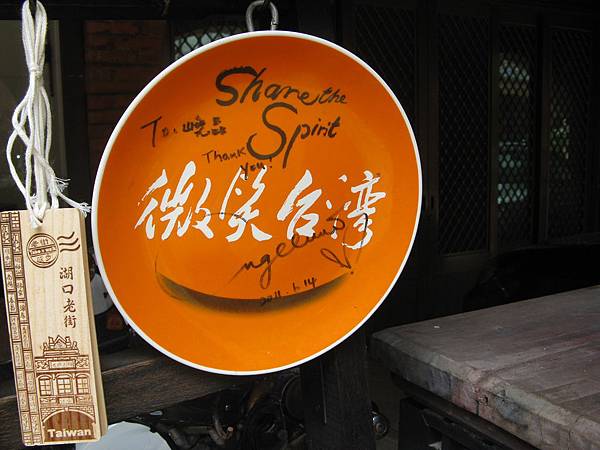 Share the
Spirit
To:
Thank
you!
微笑台灣
2011.1.14
湖口老街
Taiwan